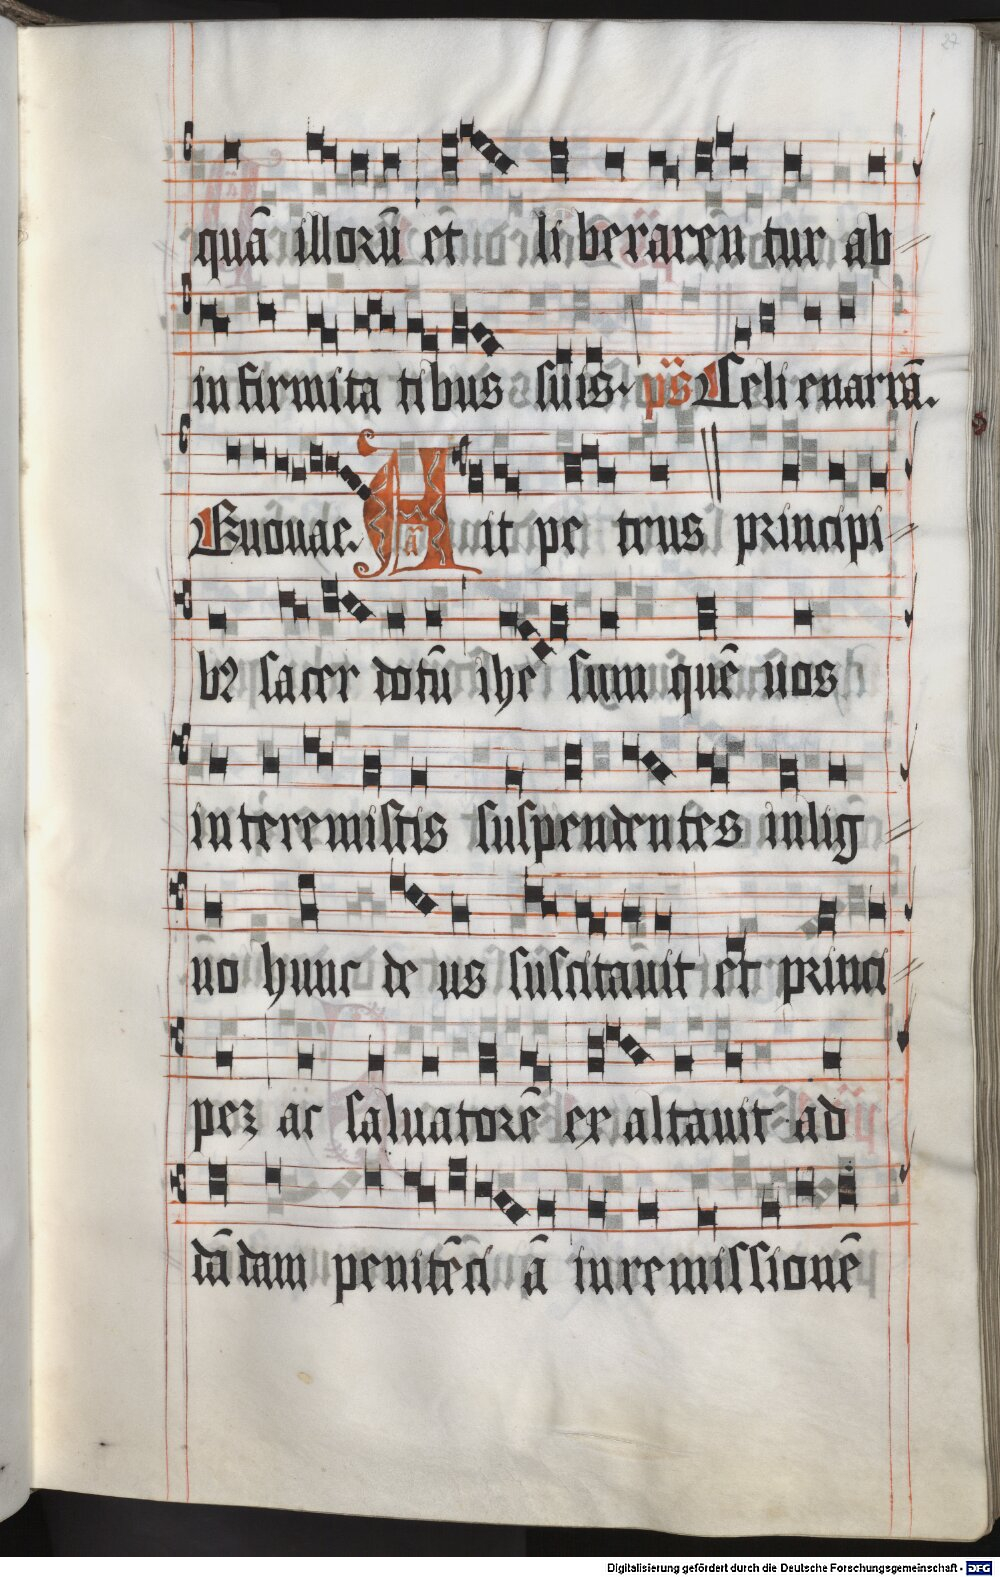 27
quā illorū et li beraren tur ab
in firmita tibus suis. p̄s Celi enarrā.
Euouae. Ā Ait pe trus principi
bꝫ sacer dotū ihe sum quē uos
interemistis suspendentes inlig
no hunc de us suscitauit et princi
pez ac saluatorē ex altauit ad
dādam penitēci ā in remissionē
Digitalisierung gefördert durch die Deutsche Forschungsgemeinschaft - DFG